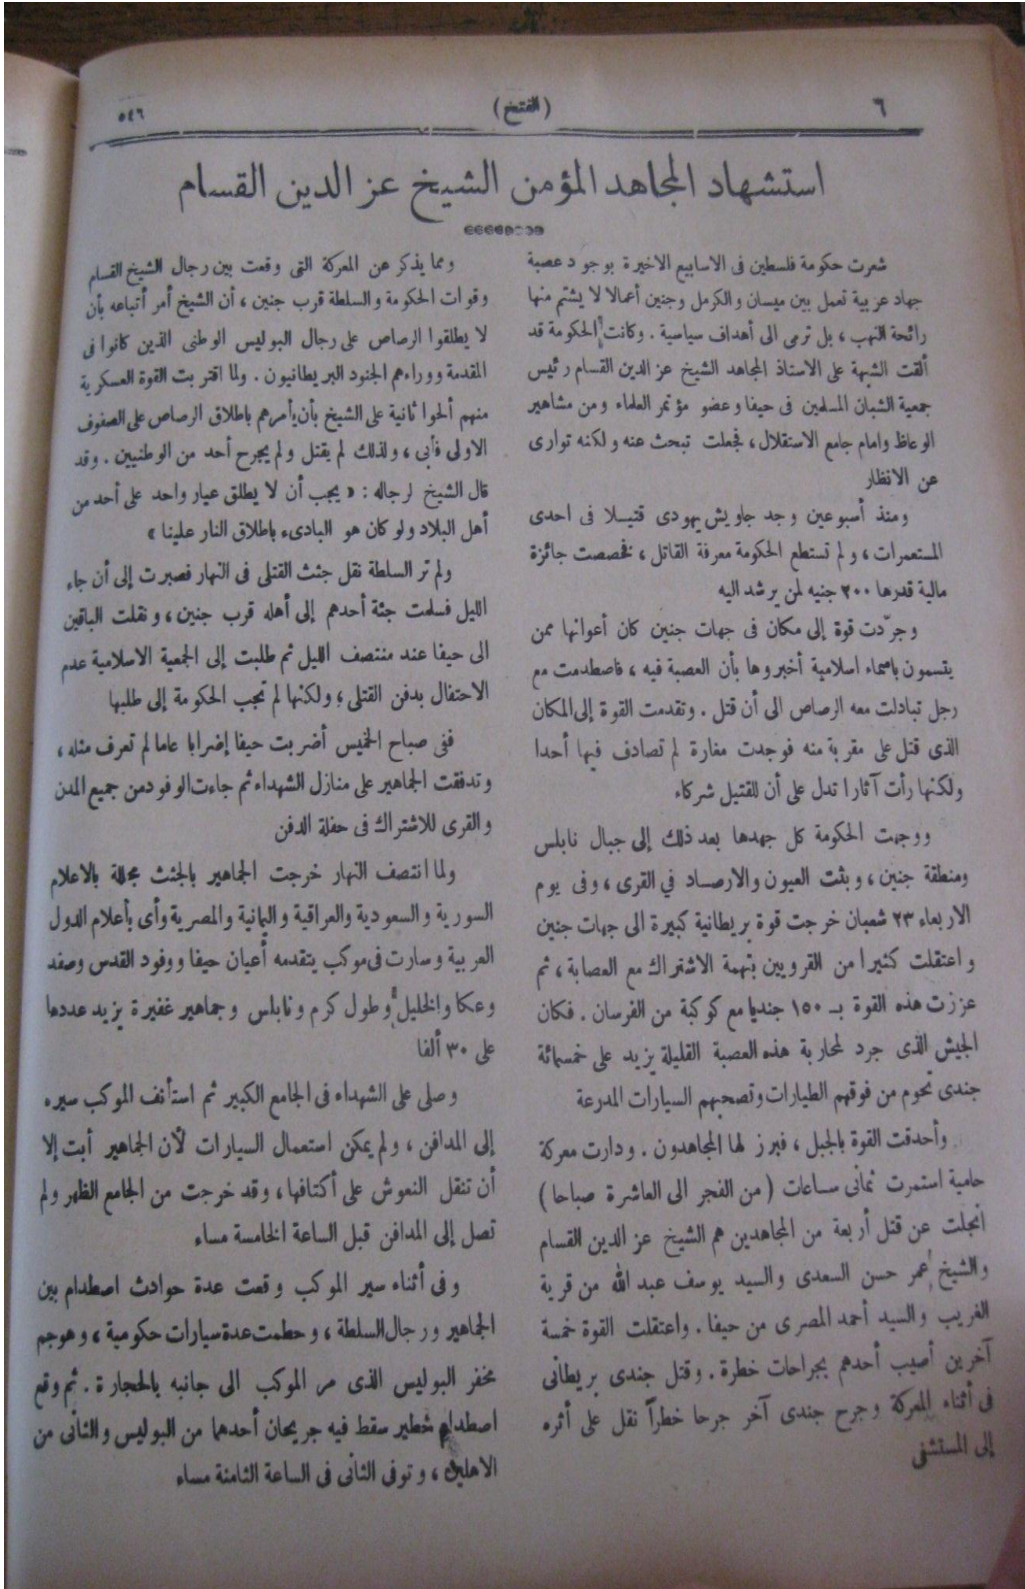 ٦
(الفتح)
٥٤٦
استشهاد المجاهد المؤمن الشيخ عز الدين القسام
شعرت حكومة فلسطين فى الاسابيع الاخيرة بوجود عصبة
جهاد عربية تعمل بين ميسان والكرمل وجنين أعمالا لا يشتم منها
رائحة النهب ، بل ترمى الى أهداف سياسية . وكانت الحكومة قد
ألقت الشبهة على الاستاذ المجاهد الشيخ عز الدين القسام رئيس
جمعية الشبان المسلمين فى حيفا وعضو مؤتمر العلماء ومن مشاهير
الوعاظ وامام جامع الاستقلال ، فجعلت تبحث عنه ولكنه توارى
عن الانظار
ومنذ أسبوعين وجد جاويش يهودى قتيلا فى احدى
المستعمرات ، ولم تستطع الحكومة معرفة القاتل ، فخصصت جائزة
مالية قدرها ٢٠٠ جنيه لمن يرشد اليه
وجرّدت قوة إلى مكان فى جهات جنين كان أعوانها ممن
يتسمون باسماء اسلامية أخبروها بأن العصبة فيه ، فاصطدمت مع
رجل تبادلت معه الرصاص الى أن قتل . وتقدمت القوة إلى المكان
الذى قتل على مقربة منه فوجدت مغارة لم تصادف فيها أحدا
ولكنها رأت آثارا تدل على أن للقتيل شركاء
ووجهت الحكومة كل جهدها بعد ذلك إلى جبال نابلس
ومنطقة جنين ، وبثت العيون والارصاد في القرى ، وفى يوم
الاربعاء ٢٣ شعبان خرجت قوة بريطانية كبيرة الى جهات جنين
واعتقلت كثيرا من القرويين بتهمة الاشتراك مع العصابة ، ثم
عززت هذه القوة بـ ١٥٠ جنديا مع كوكبة من الفرسان . فكان
الجيش الذى جرد لمحاربة هذه العصبة القليلة يزيد على خمسمائة
جندى تحوم من فوقهم الطيارات وتصحبهم السيارات المدرعة
وأحدقت القوة بالجبل ، فبرز لها المجاهدون . ودارت معركة
حامية استمرت ثمانى ساعات (من الفجر الى العاشرة صباحا)
انجلت عن قتل أربعة من المجاهدين هم الشيخ عز الدين القسام
والشيخ عمر حسن السعدى والسيد يوسف عبد الله من قرية
الغريب والسيد أحمد المصرى من حيفا . واعتقلت القوة خمسة
آخرين أصيب أحدهم بجراحات خطرة . وقتل جندى بريطانى
فى أثناء المعركة وجرح جندى آخر جرحا خطراً نقل على أثره
إلى المستشفى
ومما يذكر عن المعركة التى وقعت بين رجال الشيخ القسام
وقوات الحكومة والسلطة قرب جنين ، أن الشيخ أمر أتباعه بأن
لا يطلقوا الرصاص على رجال البوليس الوطنى الذين كانوا فى
المقدمة ووراءهم الجنود البريطانيون . ولما اقتربت القوة العسكرية
منهم ألحوا ثانية على الشيخ بأن يأمرهم باطلاق الرصاص على الصفوف
الاولى فأبى ، ولذلك لم يقتل ولم يجرح أحد من الوطنيين . وقد
قال الشيخ لرجاله : « يجب أن لا يطلق عيار واحد على أحد من
أهل البلاد ولو كان هو البادىء باطلاق النار علينا »
ولم تر السلطة نقل جثث القتلى فى النهار فصبرت إلى أن جاء
الليل فسلمت جثة أحدهم إلى أهله قرب جنين ، ونقلت الباقين
الى حيفا عند منتصف الليل ثم طلبت إلى الجمعية الاسلامية عدم
الاحتفال بدفن القتلى ، ولكنها لم تجب الحكومة إلى طلبها
ففى صباح الخميس أضربت حيفا إضرابا عاما لم تعرف مثله ،
وتدفقت الجماهير على منازل الشهداء ثم جاءت الوفود من جميع المدن
والقرى للاشتراك فى حفلة الدفن
ولما انتصف النهار خرجت الجماهير بالجثث مجللة بالاعلام
السورية والسعودية والعراقية واليمانية والمصرية وأى بأعلام الدول
العربية وسارت فى موكب يتقدمه أعيان حيفا ووفود القدس وصفد
وعكا والخليل وطول كرم ونابلس وجماهير غفيرة يزيد عددها
على ٣٠ ألفا
وصلى على الشهداء فى الجامع الكبير ثم استأنف الموكب سيره
إلى المدافن ، ولم يمكن استعمال السيارات لأن الجماهير أبت إلا
أن تنقل النعوش على أكتافها ، وقد خرجت من الجامع الظهر ولم
تصل إلى المدافن قبل الساعة الخامسة مساء
وفى أثناء سير الموكب وقعت عدة حوادث اصطدام بين
الجماهير ورجال السلطة ، وحطمت عدة سيارات حكومية ، وهوجم
مخفر البوليس الذى مر الموكب الى جانبه بالحجارة . ثم وقع
اصطدام خطير سقط فيه جريحان أحدهما من البوليس والثانى من
الاهلين ، وتوفى الثانى فى الساعة الثامنة مساء